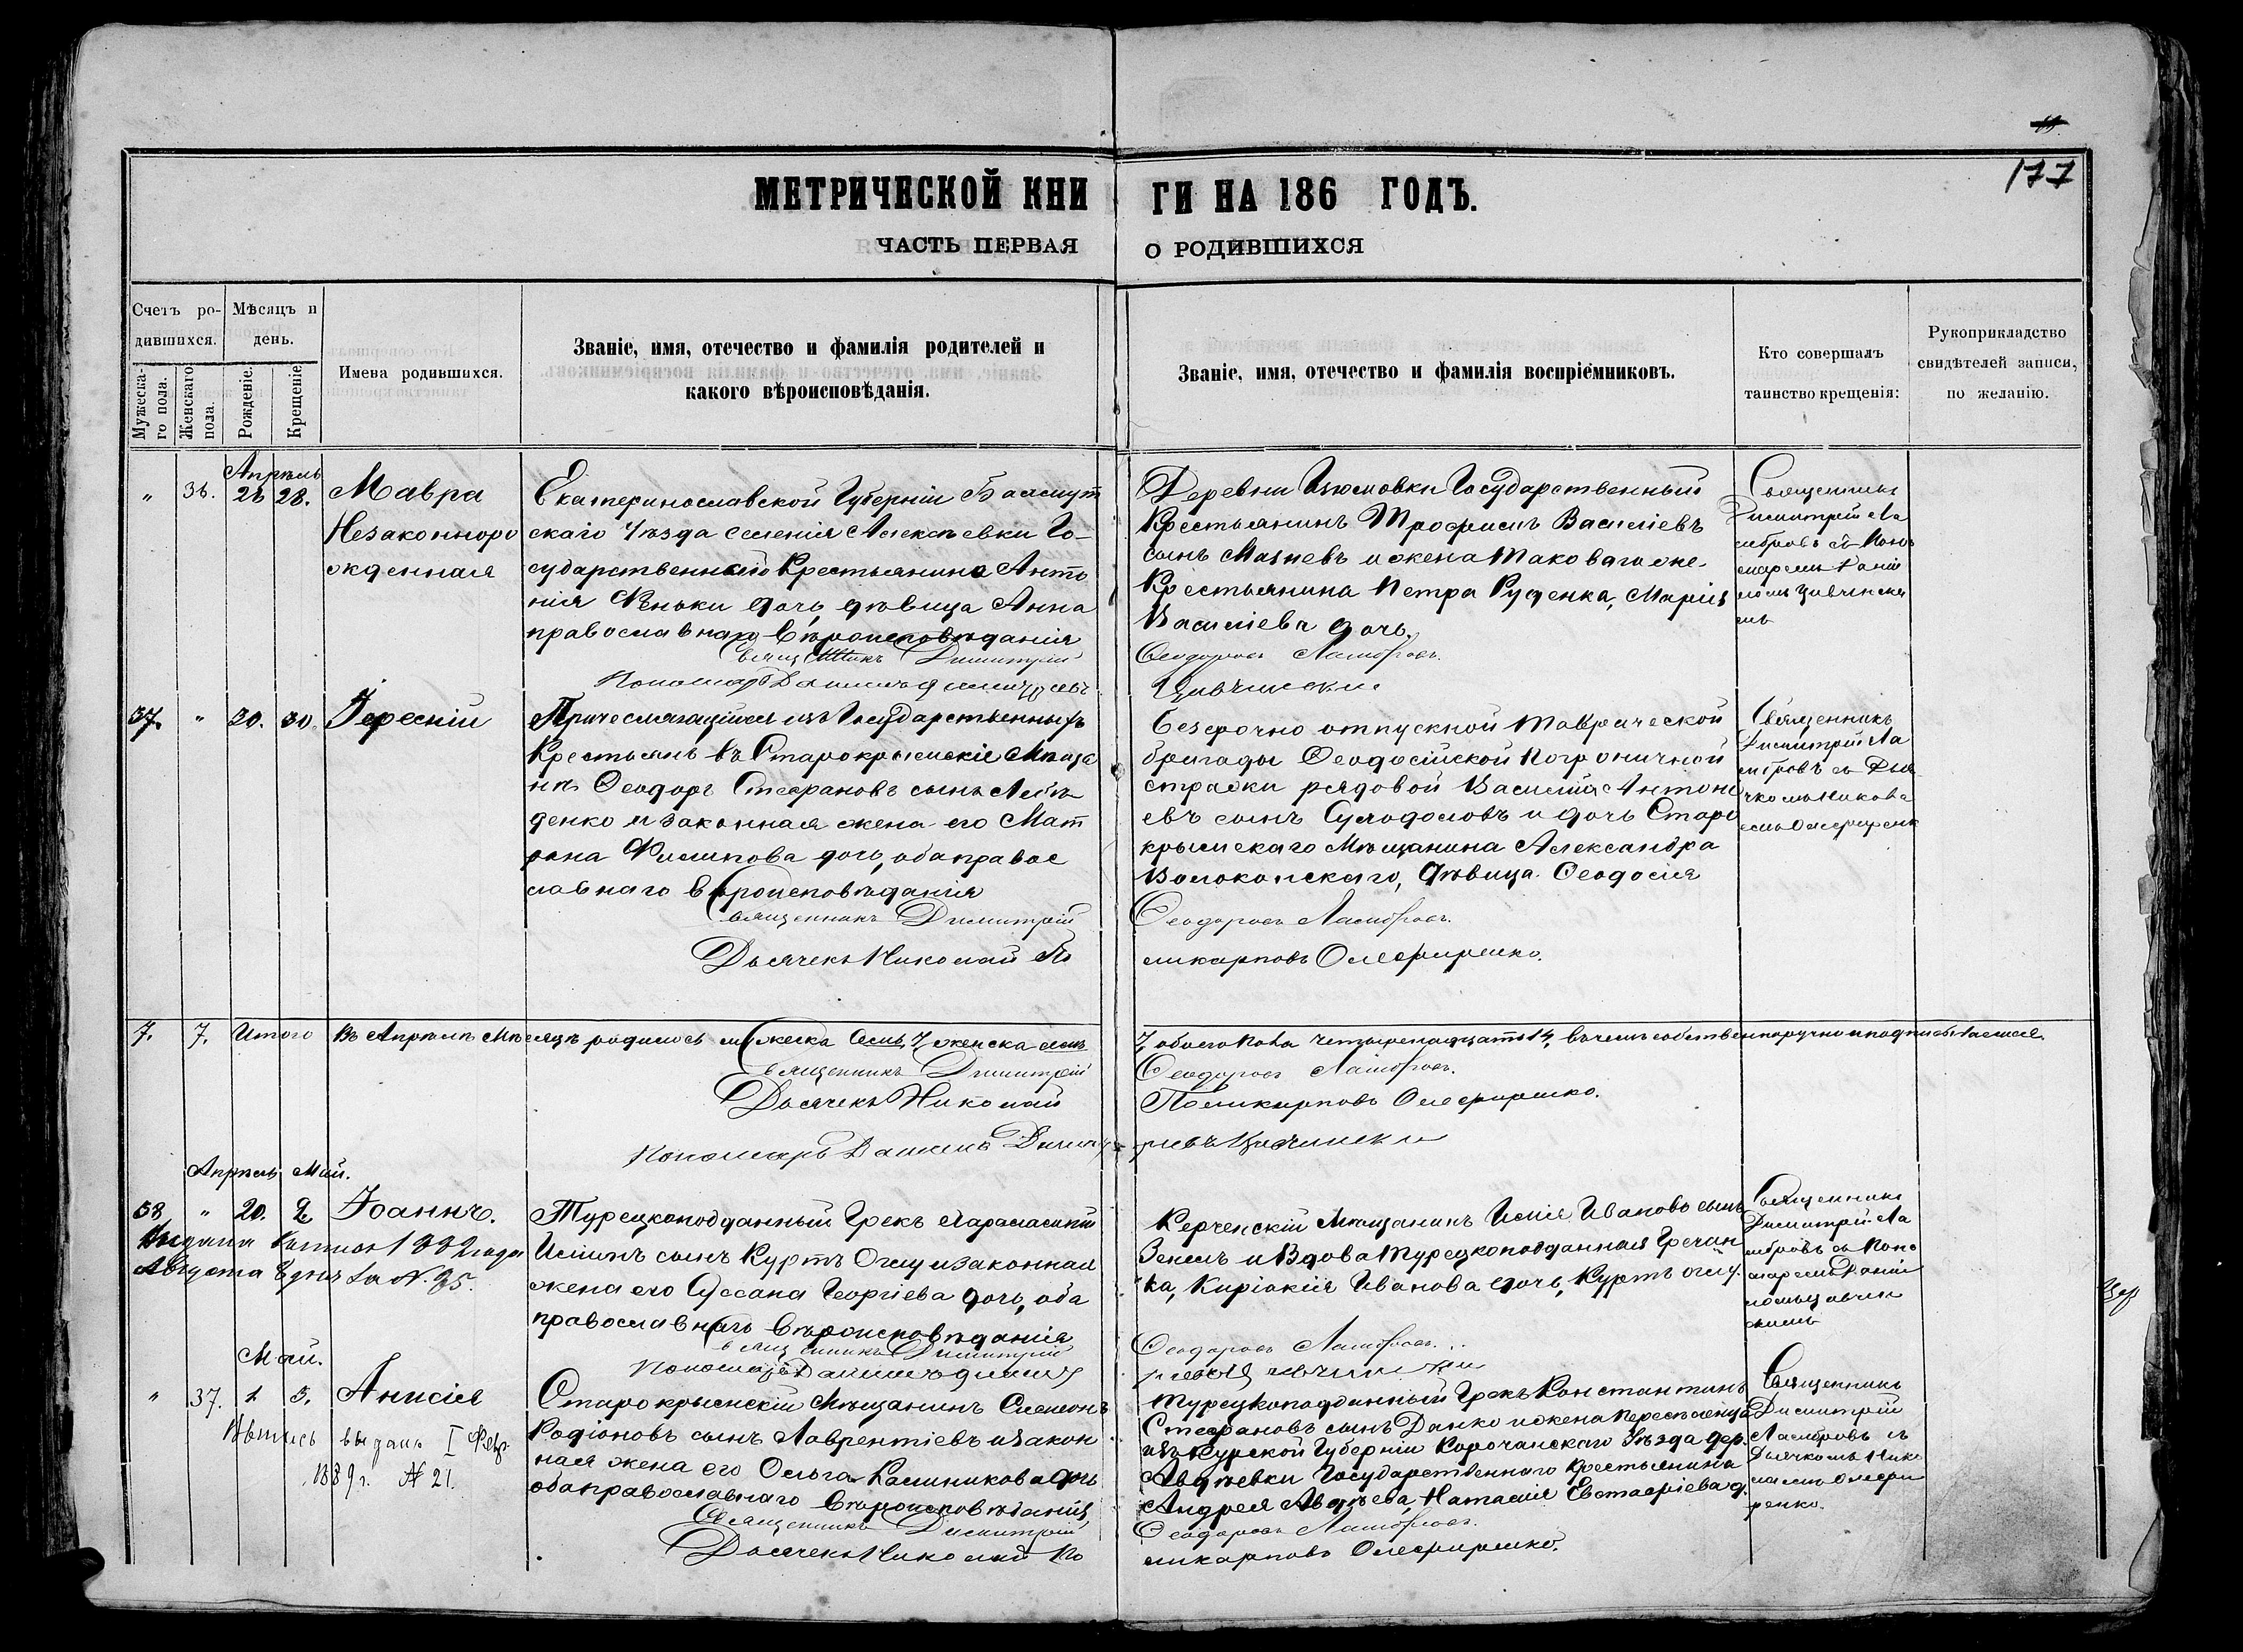 177
МЕТРИЧЕСКОЙ КНИ ГИ НА 186 ГОДЪ.
ЧАСТЬ ПЕРВАЯ О РОДИВШИХСЯ
Счетъ ро-
дившихся.
Мужеска-
го пола.
Женскаго
пола.
Мѣсяцъ и
день.
Рожденіе.
Крещеніе.
Имена родившихся.
Званіе, имя, отечество и фамилія родителей и
какого вѣроисповѣданія.
Званіе, имя, отечество и фамилія воспріемниковъ.
Кто совершалъ
таинство крещенія:
Рукоприкладство
свидѣтелей записи,
по желанію.
Апрѣль
" 36. 26 28.
Мавра
Незаконноро
жденная
Екатеринославской Губерніи Бахмут
скаго Уѣзда селенія Алексѣевки Го-
сударственнаго Крестьянина Анто
нія дочь, дѣвица Анна
православнаго вѣроисповѣданія
Священникъ Димитрій
Пономарь Даніилъ Димитріевъ
Деревни Изюмовки Государственный
Крестьянинъ Трофимъ Василіевъ
сынъ Мазневъ и жена таковагоже
Крестьянина Петра Руденка, Марія
Василіева дочь.
Ѳеодоровъ Ламбровъ.
Цивчински
Священникъ
Димитрій Ла
мбровъ съ Поно
маремъ Даніи
ломъ Цивчински
мъ
37. " 20. 30.
Іересній
Причисляющійся изъ Государственныхъ
Крестьянъ въ Старокрымскіе Мѣща
не Ѳеодоръ Стефановъ сынъ Лебѣ
денко и законная жена его Мат
рона Филипова дочь, оба правос
лавнаго вѣроисповѣданія
Священникъ Димитрій
Дьячекъ Николай По
безсрочно отпускной Таврической
бригады Ѳеодосійской Пограничной
стражи рядовой Василій Антоні
евъ сынъ и дочь Старо
крымскаго Мѣщанина Александра
Волоконскаго, Дѣвица Ѳеодосія
Ѳеодоровъ Ламбровъ.
ликарповъ Олефиренко.
Священникъ
Димитрій Ла
мбровъ съ Дья
чкомъ Никола
емъ Олефиренк
7. 7. Итого Въ Апрѣлѣ Мѣсяцѣ родилось мужеска семь, 7 женска семь
7, обоего пола четырнадцать 14, въ чемъ собственноручно и подписываемся.
Священникъ Димитрій
Ѳеодоровъ Ламбровъ.
Дьячекъ Николай
Поликарповъ Олефиренко.
Пономарь Даніилъ Димит
ріевъ Цивчински
Апрѣль Май.
38 " 20. 2
Іоаннъ.
Выдана Копія 1882 года
Августа 8 дня за №. 95.
Турецкоподданный Грекъ Харалампій
Иліинъ сынъ Куртъ Оглу и законная
жена его Суссана Георгіева дочь, оба
православнаго вѣроисповѣданія
Священникъ Димитрій
Пономарь Даніилъ Димит
Керченскій Мѣщанинъ Илія Ивановъ сынъ
и Вдова Турецкоподданная Гречан
ка, Киріакія Иванова дочь, Куртъ оглу.
Ѳеодоровъ Ламбровъ.
ріевъ Цивчински
Священникъ
Димитрій Ла
мбровъ съ Поно
маремъ Даніи
ломъ Цивчин
скимъ
Май.
" 37. 1 5.
Анисія
Выпись выдана I Февр.
1889 г. № 21.
Старокрымскій Мѣщанинъ Симеонъ
Родіоновъ сынъ Лаврентіевъ и закон
ная жена его Ольга Калиникова дочь
оба православнаго вѣроисповѣданія,
Священникъ Димитрій
Дьячекъ Николай По
Турецкоподданный Грекъ Константинъ
Стефановъ сынъ Данко и жена Переселенца
изъ Курской Губерніи Корочанскаго Уѣзда дер.
Авдѣевки Государственнаго Крестьянина
Андрея Авдѣева, Наталія Евстафіева д.
Ѳеодоровъ Ламбровъ.
ликарповъ Олефиренко.
Священникъ
Димитрій
Ламбровъ съ
Дьячкомъ Нико
лаемъ Олефи
ренко.